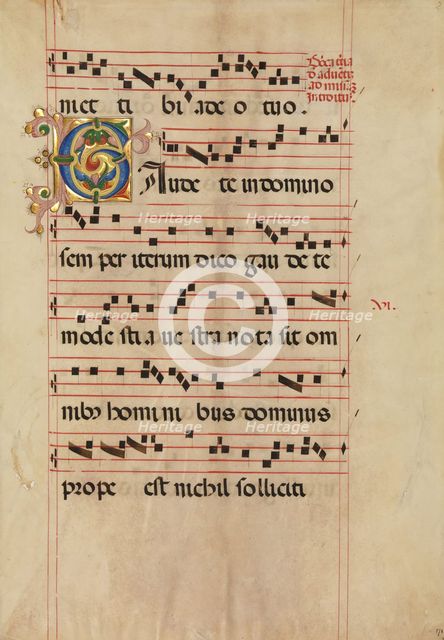 niet ti bi a deo tuo.
Dñica t̃cia
d'adventu
ad missã
Introitus
Gaude te in domino
sem per iterum dico gau de te
VI.
modestia ve stra nota sit om
nibꝫ homi ni bus dominus
prope est nichil solliciti
Heritage
Heritage
Heritage
Heritage
Heritage
Heritage